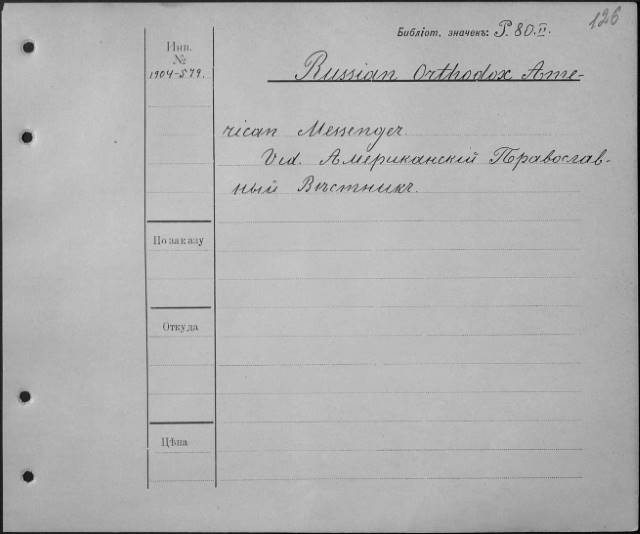 126
Библіот. значекъ: P. 80. II.
Инв.
№
1904-579.
Russian Orthodox Ame-
rican Messenger.
Vid. Американскій Православ-
ный Вѣстникъ.
По заказу
Откуда
Цѣна